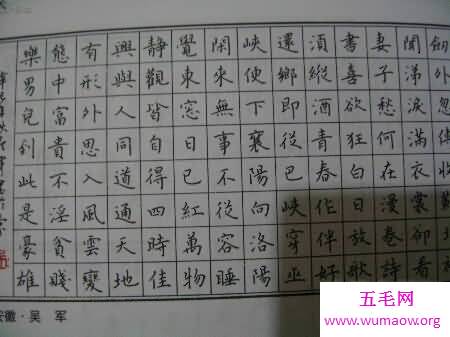 劍外忽
聞涕淚滿衣裳卻看
妻子愁何在漫卷詩
書喜欲狂白日放歌
須縱酒青春作伴好
還鄉即從巴峽穿巫
峽便下襄陽向洛陽
閑來無事不從容睡
覺東窓日已紅萬物
靜觀皆自得四時佳
興與人同道通天地
有形外思入風雲變
態中富貴不淫貧賤
樂男兒到此是豪雄
安徽·吴 军
五毛网
www.wumaow.org